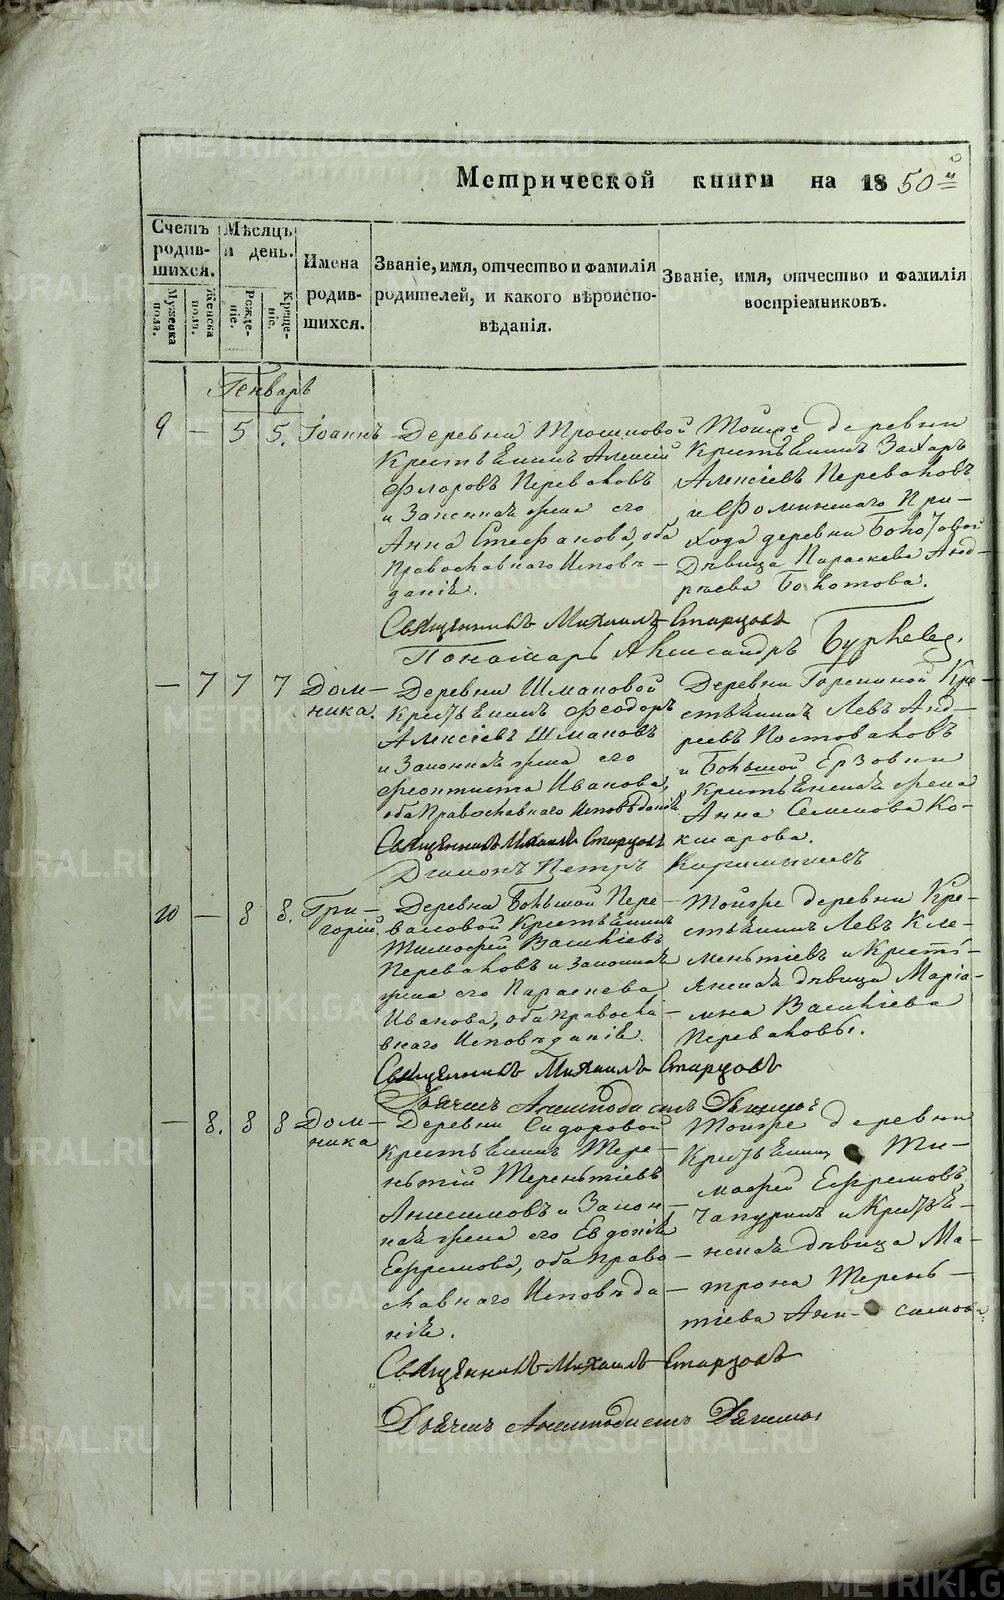 Метрической книги на 1850й
Счетъ родив-шихся.
Мужеска пола.
Женска пола.
Мѣсяцъ и день.
Рожде-ніе.
Креще-ніе.
Имена родив-шихся.
Званіе, имя, отчество и фамилія
родителей, и какого вѣроиспо-
вѣданія.
Званіе, имя, отчество и фамилія
воспріемниковъ.
Генварь
9 — 5 5. Іоаннъ
Деревни
Крестьянинъ Алексій
Флоровъ Переваловъ
и Законная жена его
Анна Стефанова, оба
Православнаго Исповѣ-
данія.
Тойже деревни
Крестьянинъ Захаръ
Алексіевъ Переваловъ
и Фоминскаго При-
хода деревни
Дѣвица Параскева Анд-
реева Бокотова.
Священникъ Михаилъ Старцовъ
Пономарь Александръ
— 7 7 7 Дом-
ника.
Деревни Шмаковой
Крестьянинъ Феодоръ
Алексіевъ Шмаковъ
и Законная жена его
Феоктиста Иванова,
оба Православнаго Исповѣданія
Деревни Горскиной Кре-
стьянинъ Левъ Анд-
реевъ Постоваловъ
и Большой Ерзовки
Крестьянская жена
Анна Семенова Ко-
кшарова.
Священникъ Михаилъ Старцовъ
Діаконъ Петръ
10 — 8 8. Гри-
горій
Деревни Большой Пере-
валовой Крестьянинъ
Тимофей Василіевъ
Переваловъ и Законная
жена его Параскева
Иванова, оба Правосла-
внаго Исповѣданія.
Тойже деревни Кре-
стьянинъ Левъ Кле-
ментіевъ и Кресть-
янская дѣвица Марі-
мна Василіева
Переваловы.
Священникъ Михаилъ Старцовъ
Дьячекъ
— 8. 8 8 Дом-
ника
Деревни Сидоровой
Крестьянинъ Тере-
нтій Терентіевъ
Анисимовъ и Закон-
ная жена его Евдокія
Ефремова, оба Право-
славнаго Исповѣда-
нія.
Тойже деревни
Крестьянинъ Ти-
мофей Ефремовъ
Чапуринъ и Крестья-
нская дѣвица Ма-
трона Терень-
тіева Ани-симова
Священникъ Михаилъ Старцовъ
Дьячекъ
METRIKI.GASO-URAL.RU